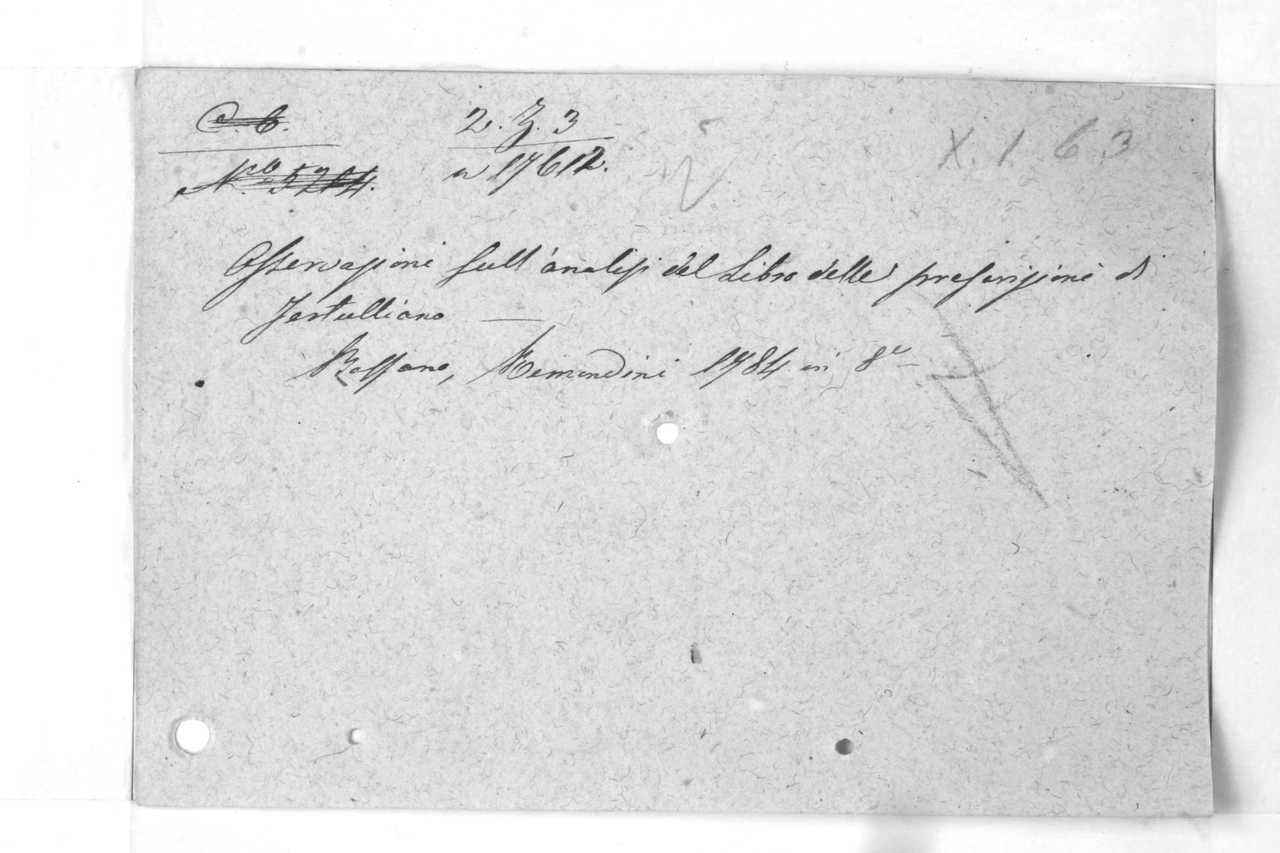 C. 6. 2. Z. 3 X. 1 63
N.ro 5204. n 17612.
Osservazioni sull'analisi del Libro delle prescrizioni di
Tertulliano —
Bassano, Remondini 1784 in 8°